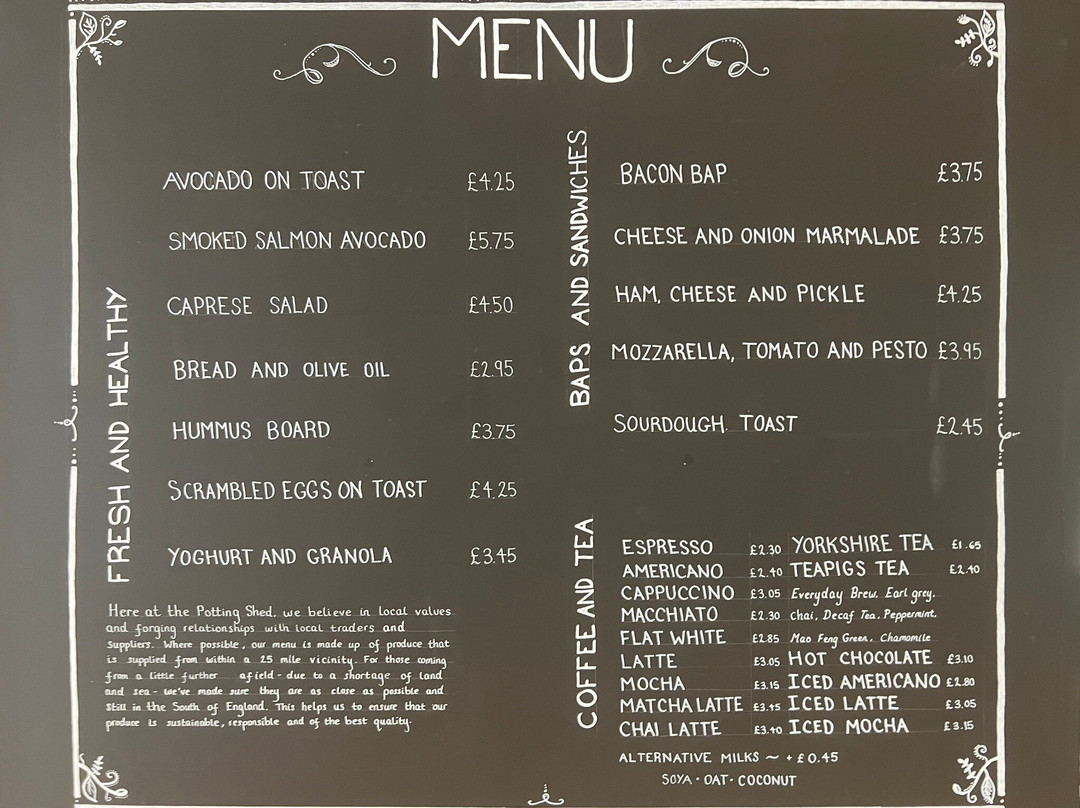 MENU
FRESH AND HEALTHY
AVOCADO ON TOAST £4.25
SMOKED SALMON AVOCADO £5.75
CAPRESE SALAD £4.50
BREAD AND OLIVE OIL £2.95
HUMMUS BOARD £3.75
SCRAMBLED EGGS ON TOAST £4.25
YOGHURT AND GRANOLA £3.45
Here at the Potting Shed, we believe in local values
and forging relationships with local traders and
Suppliers. Where possible, our menu is made up of produce that
is supplied from within a 25 mile vicinity. For those coming
from a little further afield - due to a shortage of land
and sea - we've made sure they are as close as possible and
Still in the South of England. This helps us to ensure that our
produce is sustainable, responsible and of the best quality.
BAPS AND SANDWICHES
BACON BAP £3.75
CHEESE AND ONION MARMALADE £3.75
HAM, CHEESE AND PICKLE £4.25
MOZZARELLA, TOMATO AND PESTO £3.95
SOURDOUGH TOAST £2.45
COFFEE AND TEA
ESPRESSO £2.30
AMERICANO £2.40
CAPPUCCINO £3.05
MACCHIATO £2.30
FLAT WHITE £2.85
LATTE £3.05
MOCHA £3.15
MATCHA LATTE £3.45
CHAI LATTE £3.40
YORKSHIRE TEA £1.65
TEAPIGS TEA £2.40
Everyday Brew, Earl grey,
Chai, Decaf Tea, Peppermint,
Mao Feng Green, Chamomile
HOT CHOCOLATE £3.10
ICED AMERICANO £2.80
ICED LATTE £3.05
ICED MOCHA £3.15
ALTERNATIVE MILKS ~ + £0.45
SOYA · OAT · COCONUT